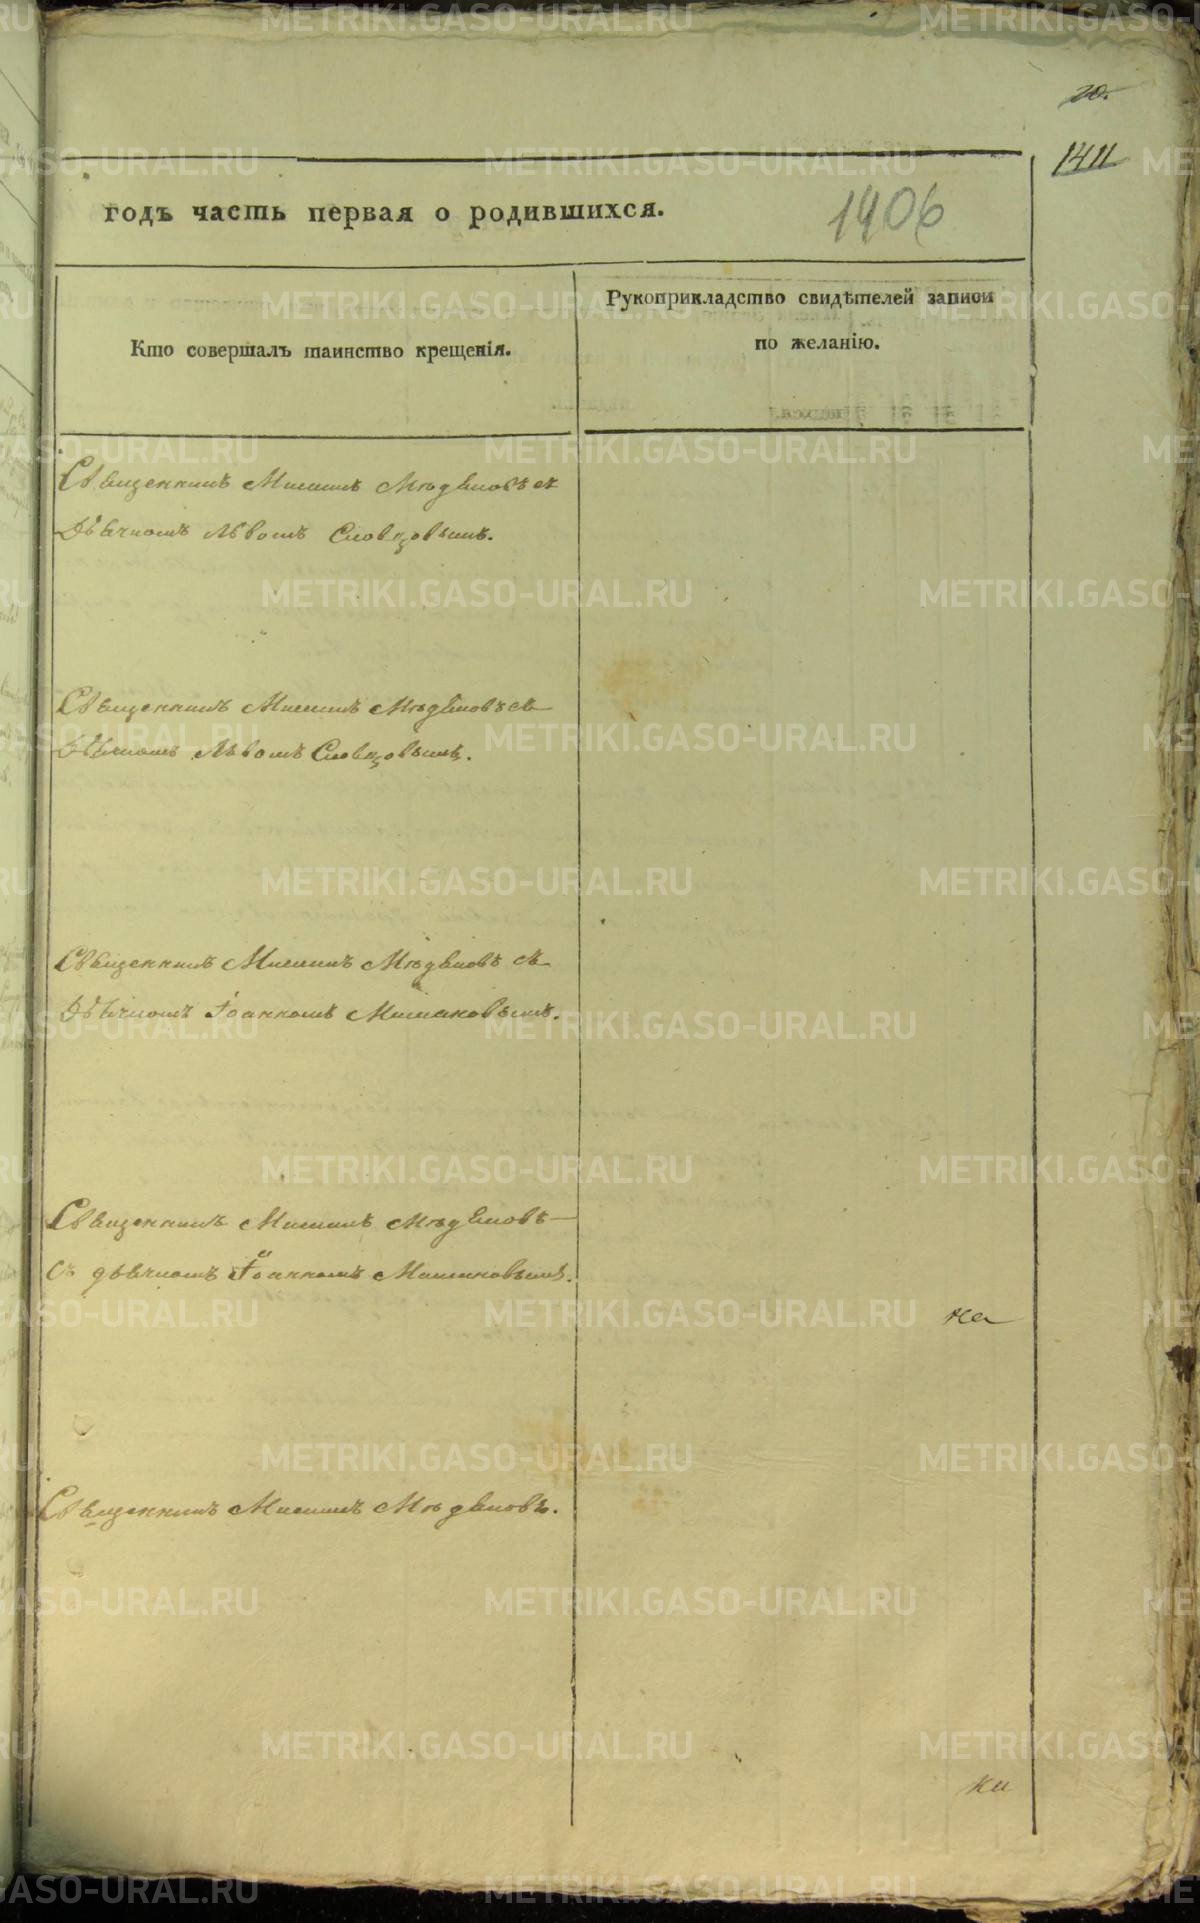 20.
1411
годъ часть первая о родившихся.
1406
Кто совершалъ таинство крещенія.
Рукоприкладство свидѣтелей записи
по желанію.
Священникъ Михаилъ съ
Дьячкомъ Львомъ Словцовымъ.
Священникъ Михаилъ съ
Дьячкомъ Львомъ Словцовымъ.
Священникъ Михаилъ съ
Дьячкомъ Іоанномъ
Священникъ Михаилъ
съ дьячкомъ Іоанномъ
на
Священникъ Михаилъ
ки
METRIKI.GASO-URAL.RU